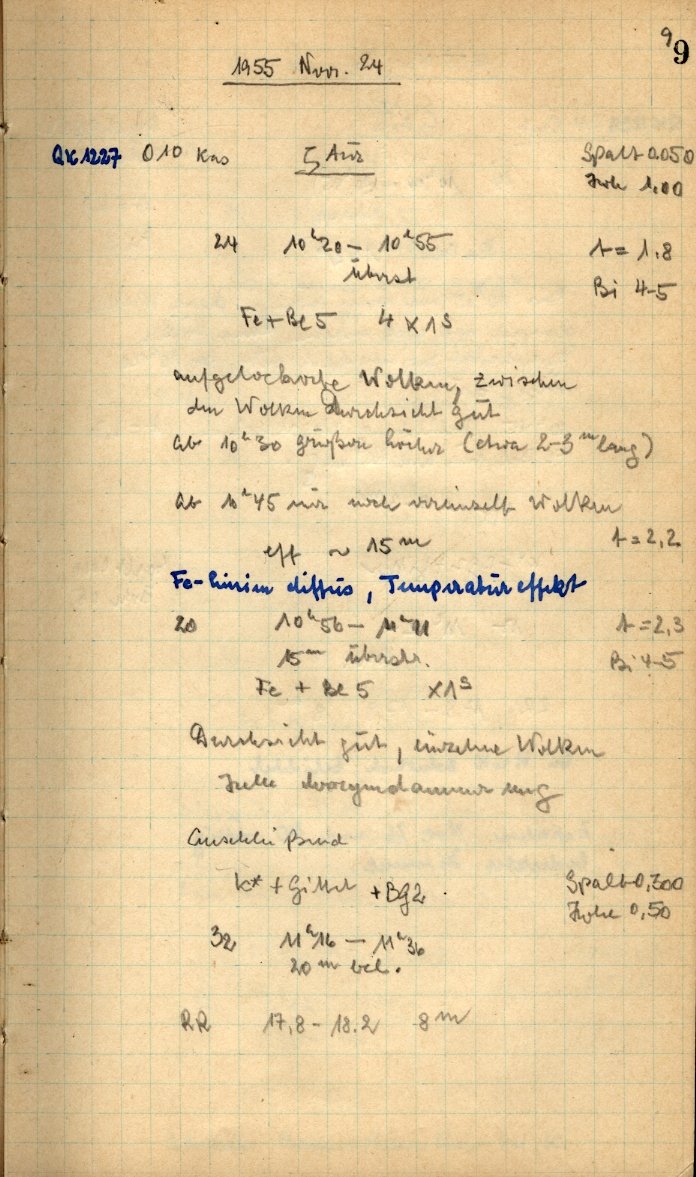 9 9
1955 Nov. 24
QK1227 010 Kas ζ Aur Spalt 0.050
Höhe 1,00
24 10ʰ20 – 10ʰ55 t = 1.8
überst Bi 4-5
Fe + Be 5 4 x 1ˢ
aufgelockerte Wolken, zwischen
den Wolken Durchsicht gut
ab 10ʰ30 größere Löcher (etwa 2-3ᵐ lang)
ab 10ʰ45 nur noch vereinzelt Wolken
eff ~ 15ᵐ t = 2,2
Fe-Linien diffus, Temperatureffekt
20 10ʰ56 – 11ʰ11 t = 2,3
15ᵐ überstr. Bi 4-5
Fe + Be 5 x 1ˢ
Durchsicht gut, einzelne Wolken
helle Morgendämmerung
Anschließend
K* + Gitter + BG2. Spalt 0,300
Höhe 0,50
32 11ʰ16 – 11ʰ36
20ᵐ bel.
RR 17,8 – 18.2 8ᵐ